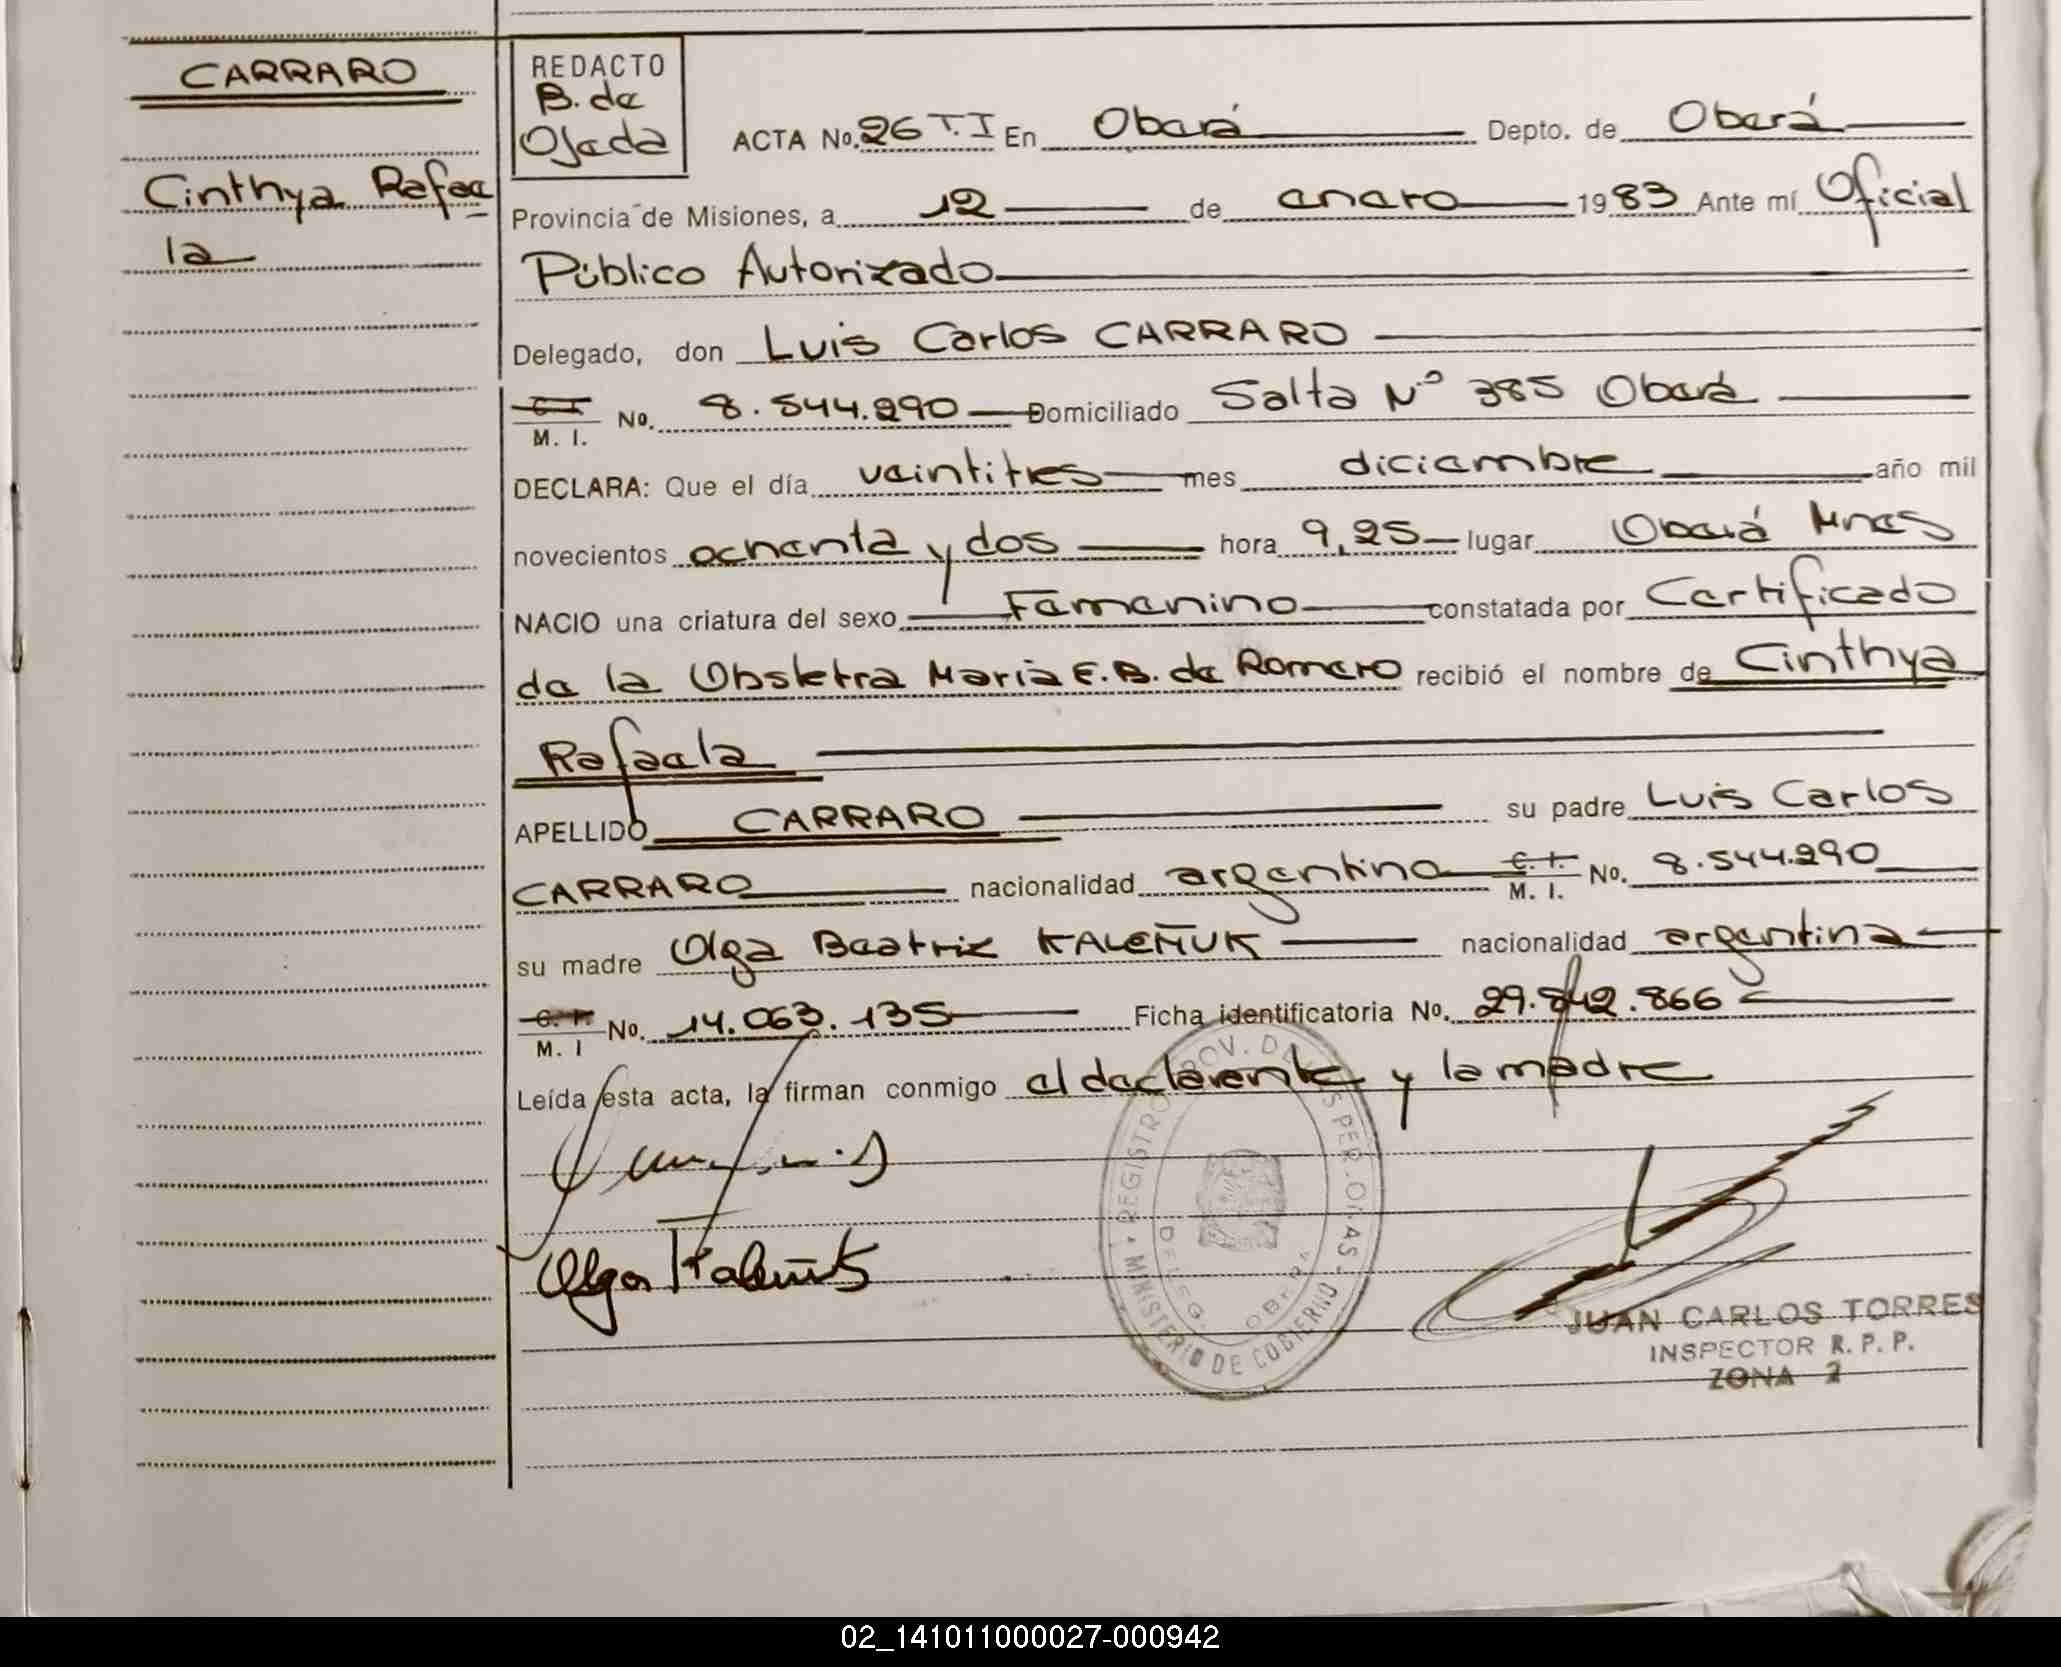 CARRARO
Cinthya Rafae
la
REDACTO
B. de
Ojeda
ACTA No. 26 T.I En Oberá Depto. de Oberá
Provincia de Misiones, a 12 de enero 1983 Ante mí Oficial
Público Autorizado
Delegado, don Luis Carlos CARRARO
C. I.
M. I. No. 8.544.290 Domiciliado Salta Nº 385 Oberá
DECLARA: Que el día veintitres mes diciembre año mil
novecientos ochenta y dos hora 9,25 lugar Oberá Mnes
NACIO una criatura del sexo Femenino constatada por Certificado
de la Obstetra María E. B. de Romero recibió el nombre de Cinthya
Rafaela
APELLIDO CARRARO su padre Luis Carlos
CARRARO nacionalidad argentino C. I. M. I. No. 8.544.290
su madre Olga Beatriz KALEÑUK nacionalidad argentina
C. I.
M. I No. 14.063.135 Ficha identificatoria No. 29.842.866
Leída esta acta, la firman conmigo el declarente y la madre
Olga Kaleñuk
REGISTRO PROV. DE LAS PER.
MINISTERIO DE GOBIERNO
DELEG. OBERA
JUAN CARLOS TORRES
INSPECTOR R. P. P.
ZONA 2
02_141011000027-000942